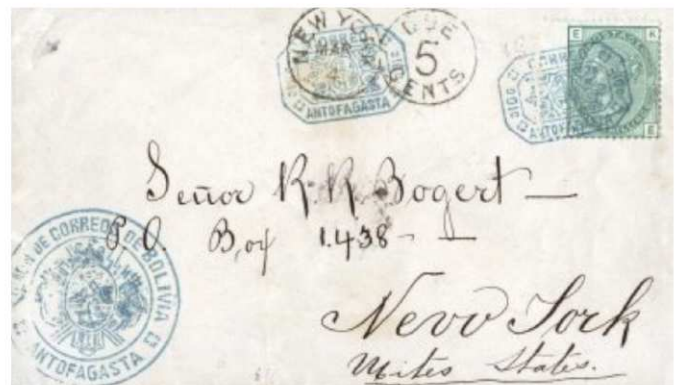 NEW YORK MAR DUE 5 CENTS
ANTOFAGASTA
E K
E
Señor R. R. Bogert —
P.O. Box 1.438 - —
New York
Unites States.
DE CORREOS DE BOLIVIA
ANTOFAGASTA